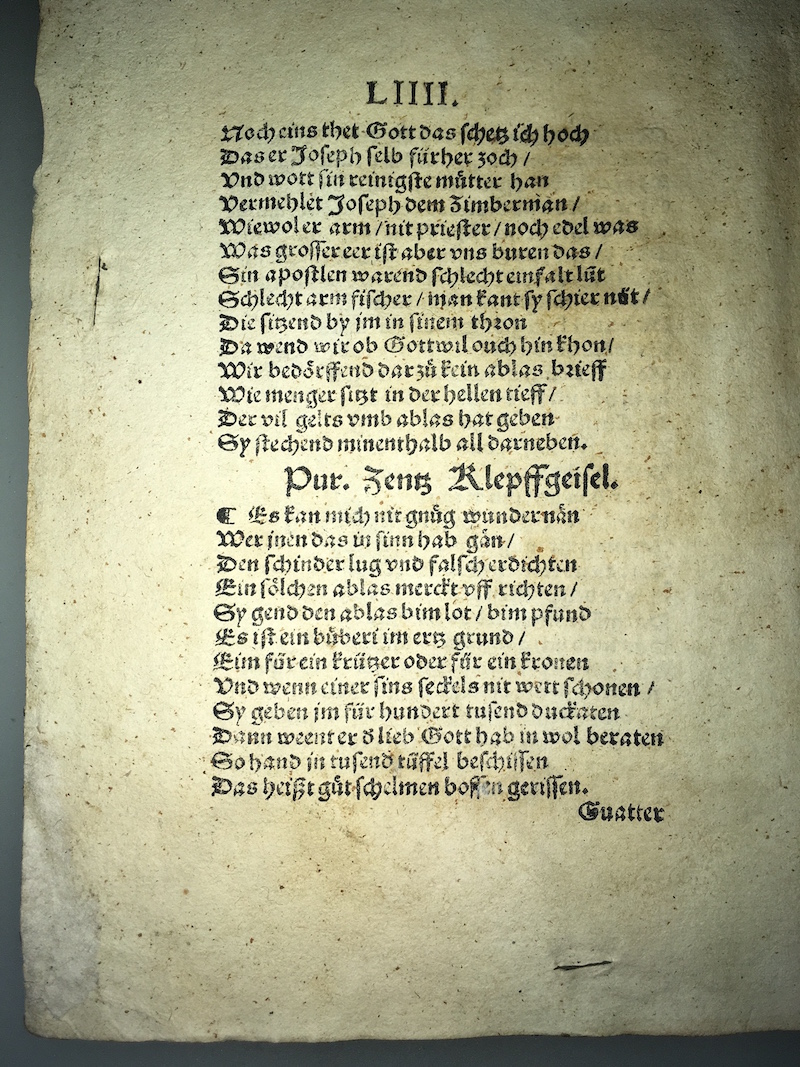 LIIII.
Noch eins thet Gott das schetz ich hoch
Das er Joseph selb fürher zoch /
Vnd wott sin reinigste můtter han
Vermehlet Joseph dem Zimberman /
Wiewol er arm / nit priester / noch edel was
Was grosser eer ist aber vns buren das /
Sin apostlen warend schlecht einfalt lüt
Schlecht arm fischer / man kant sy schier nüt /
Die sitzend by jm in sinem thron
Da wend wir ob Gott wil ouch hin khon /
Wir bedörffend darzů kein ablas brieff
Wie menger sitzt in der hellen tieff /
Der vil gelts vmb ablas hat geben
Sy stechend minenthalb all darneben.
Pur. Zentz Klepffgeisel.
¶ Es kan mich nit gnůg wunder nän
Wer jnen das in sinn hab gän /
Den schinder lug vnd falsch erdichten
Ein sölchen ablas merckt vff richten /
Sy gend den ablas bim lot / bim pfund
Es ist ein bůberi im ertz grund /
Eim für ein krützer oder für ein kronen
Vnd wenn einer sins seckels nit wett schonen /
Sy geben jm für hundert tusend duckaten
Dann weent er d lieb Gott hab in wol beraten
So hand in tusend tüffel beschissen
Das heißt gůt schelmen bossen gerissen.
Guatter